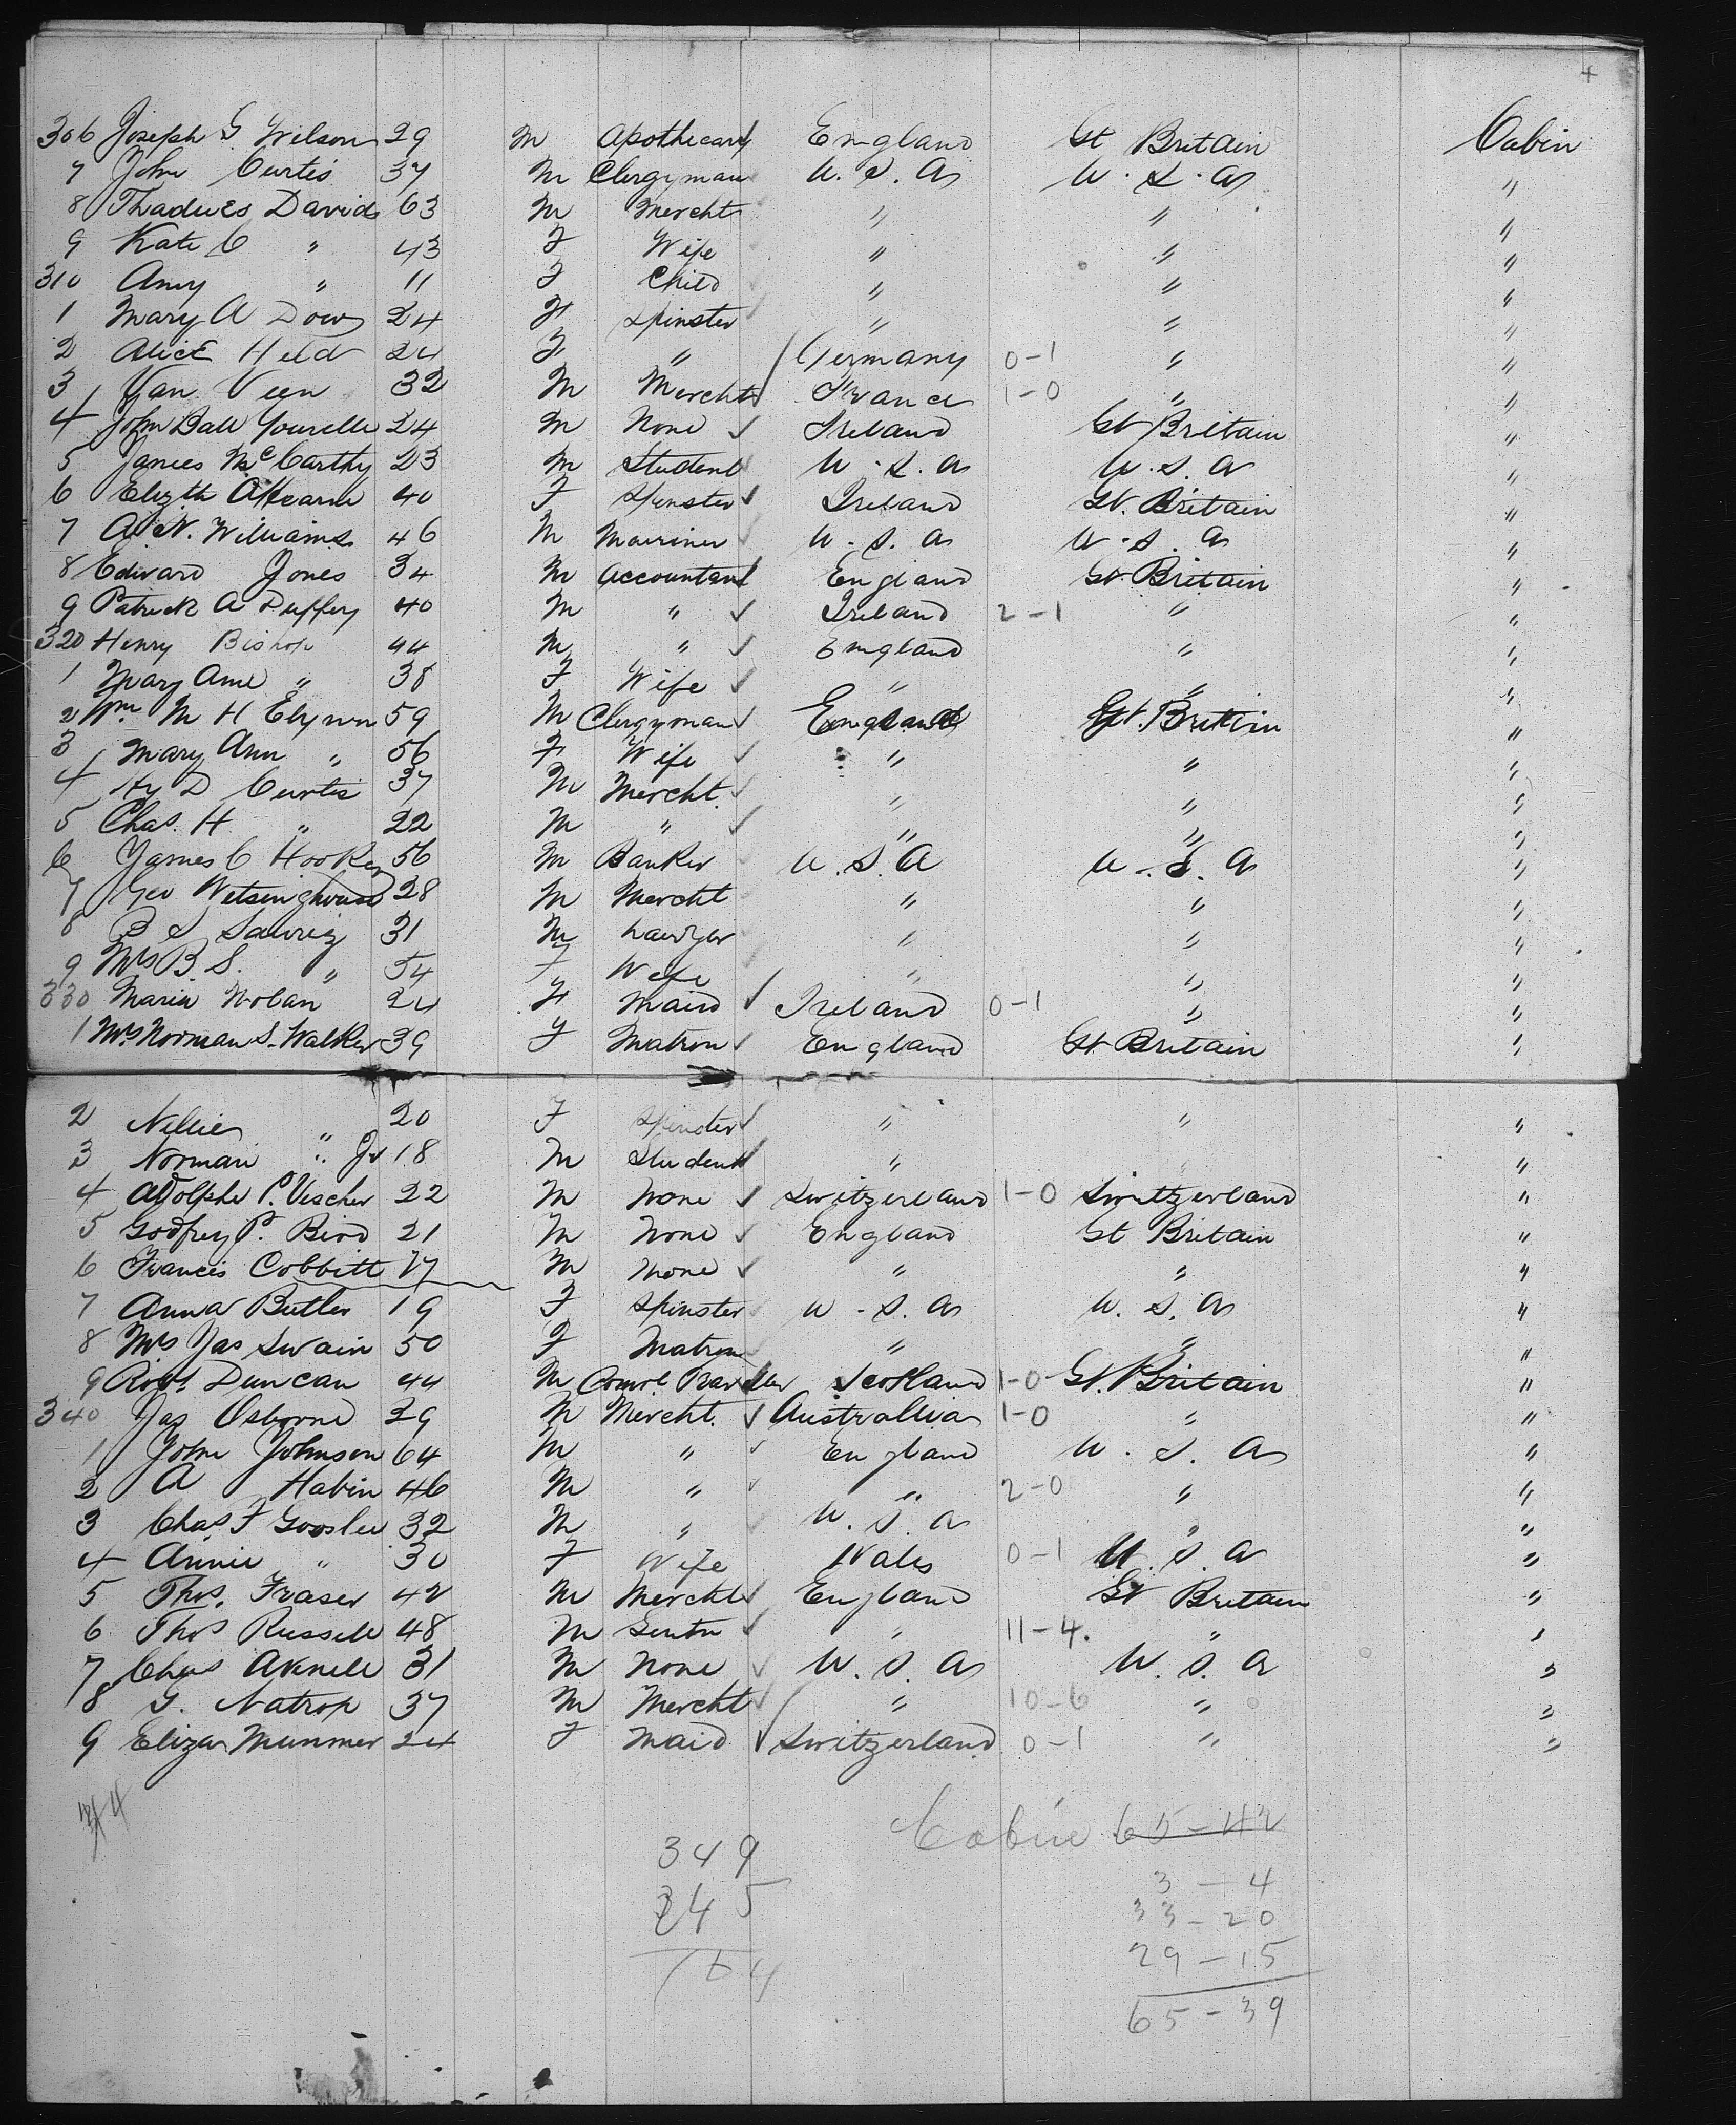 4
306 Joseph G. Wilson 29 M Apothecary England Gt Britain Cabin
7 John Curtis 37 M Clergyman U.S.A U.S.A "
8 Thadues Davids 63 M Mercht " " "
9 Kate C " 43 F Wife " " "
310 Amy " 11 F Child " " "
1 Mary A Dow 24 F Spinster " " "
2 Alice Held 24 F " Germany 0-1 " "
3 Van Veen 32 M Mercht France 1-0 " "
4 John Ball Yourelle 24 M None Ireland Gt Britain "
5 James McCarthy 23 M Student U.S.A U.S.A "
6 Elizth AHearne 40 F Spinster Ireland Gt. Britain "
7 A. N. Williams 46 M Marriner U.S.A U.S.A "
8 Edward Jones 34 M Accountant England Gt Britain "
9 Patrick A Duffey 40 M " Ireland 2-1 " "
320 Henry Bishop 44 M " England " "
1 Mary Ame " 38 F Wife " " "
2 Wm M H Elynn 59 M Clergyman England Gt. Britain "
3 Mary Ann " 56 F Wife " " "
4 Hy D Curtis 37 M Mercht. " " "
5 Chas. H " 22 M " " " "
6 James C Hooker 56 M Banker U.S.A U.S.A "
7 Geo Wetsinghouse 28 M Mercht " " "
8 B S 31 M Lawyer " " "
9 Mrs B.S. " 54 F Wife " " "
330 Maria Nolan 24 F Maid Ireland 0-1 " "
1 Mrs Norman S. Walker 39 F Matron England Gt Britain "
2 Nellie " 20 F Spinster " " "
3 Norman " Jr 18 M Student " "
4 Adolphe P. Vischer 22 M None Switzerland 1-0 Switzerland "
5 Godfrey P. Bird 21 M None England Gt Britain "
6 Francis Cobbitt 17 M None " " "
7 Anna Butler 19 F Spinster U.S.A U.S.A "
8 Mrs Jas Swain 50 F Matron " " "
9 Robt Duncan 44 M Comrl Traveller Scotland 1-0 Gt. Britain "
340 Jas Osborne 29 M Mercht. Australlia 1-0 " "
1 John Johnson 64 M " England U.S.A "
2 A Habin 46 M " " 2-0 " "
3 Chas F Gooslee 32 M " U.S.A " "
4 Annie " 30 F Wife Wales 0-1 U.S.A "
5 Thos. Fraser 42 M Mercht England Gt Britain "
6 Thos Russell 48 M Gentn " 11-4. " "
7 Chas Aknell 31 M None U.S.A U.S.A "
8 G. Natrop 37 M Mercht " 10-6 " "
9 Eliza Mummer 24 F Maid Switzerland 0-1 " "
44
Cabin 65-42
349
345
3-4
33-20
29-15
65-39